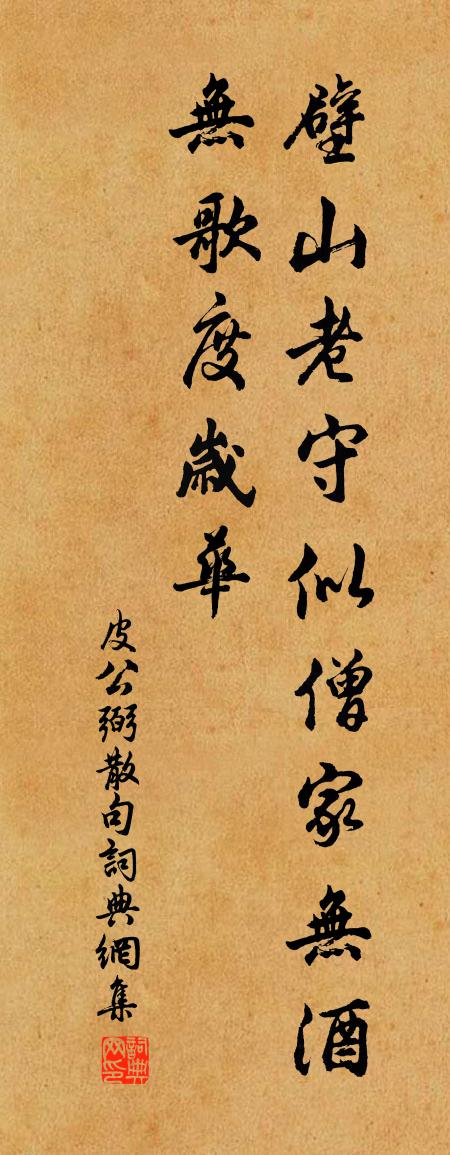 壁山老守似僧家無酒
無歌度歲華
皮公弼散句詞典網集
詞典网印